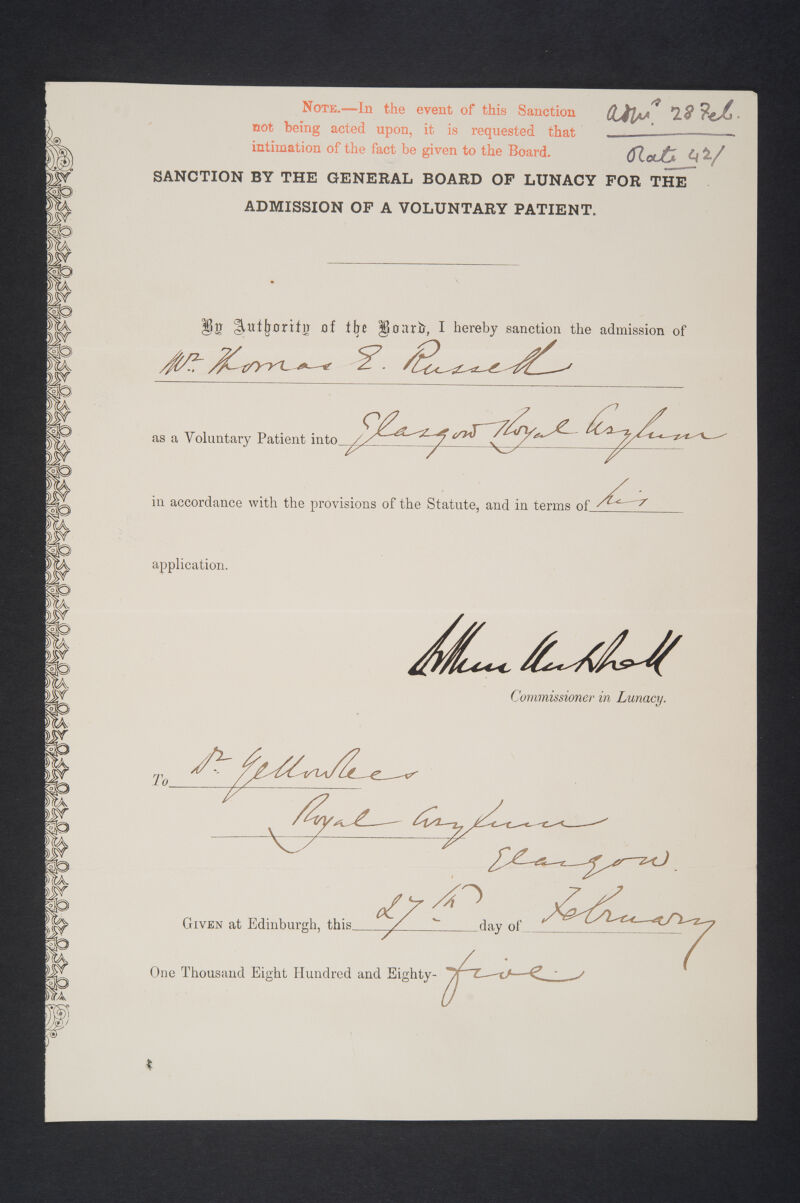 NOTE.—In the event of this Sanction
not being acted upon, it is requested that
intimation of the fact be given to the Board.
Admd 28 Feb.
Rate 42/
SANCTION BY THE GENERAL BOARD OF LUNACY FOR THE
ADMISSION OF A VOLUNTARY PATIENT.
By Authority of the Board, I hereby sanction the admission of
Mr. Thomas E. Russell
as a Voluntary Patient into Glasgow Royal Asylum
in accordance with the provisions of the Statute, and in terms of his
application.
Arthur Mitchell
Commissioner in Lunacy.
To Dr. Yellowlees
Royal Asylum
Glasgow.
GIVEN at Edinburgh, this 27th day of February
One Thousand Eight Hundred and Eighty-five.